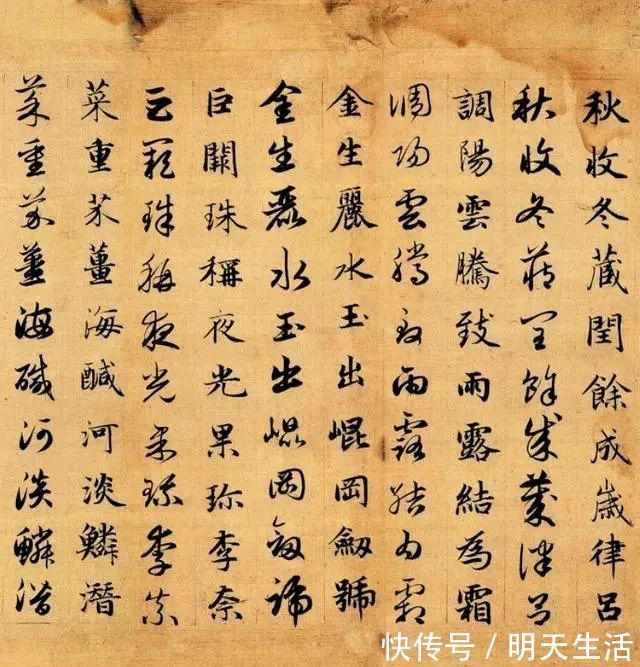 秋收冬蔵閏餘成嵗律呂
秋收冬蔵閏餘成歲律呂
調陽雲騰致雨露結為霜
調陽雲騰致雨露結為霜
金生麗水玉出崐岡劒號
金生麗水玉出崐岡劒號
巨闕珠稱夜光果珎李柰
巨闕珠稱夜光果珎李柰
菜重芥薑海鹹河淡鱗潛
菜重芥薑海鹹河淡鱗潛
快传号/明天生活